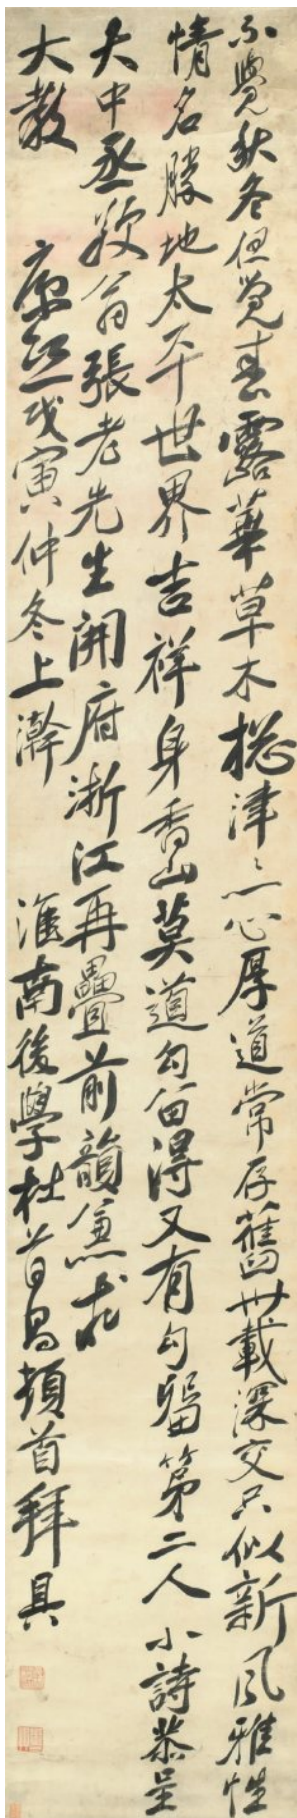 不覺秋冬但覺春露華草木總津〻一心厚道常存舊卅載深交只似新風雅性
情名勝地太平世界吉祥身香山莫道勾留得又有勾留第二人小詩恭呈
大中丞敬翁張老先生開府浙江再疊前韻兼求
大教 康熙戊寅仲冬上澣 淮南後學杜首昌頓首拜具